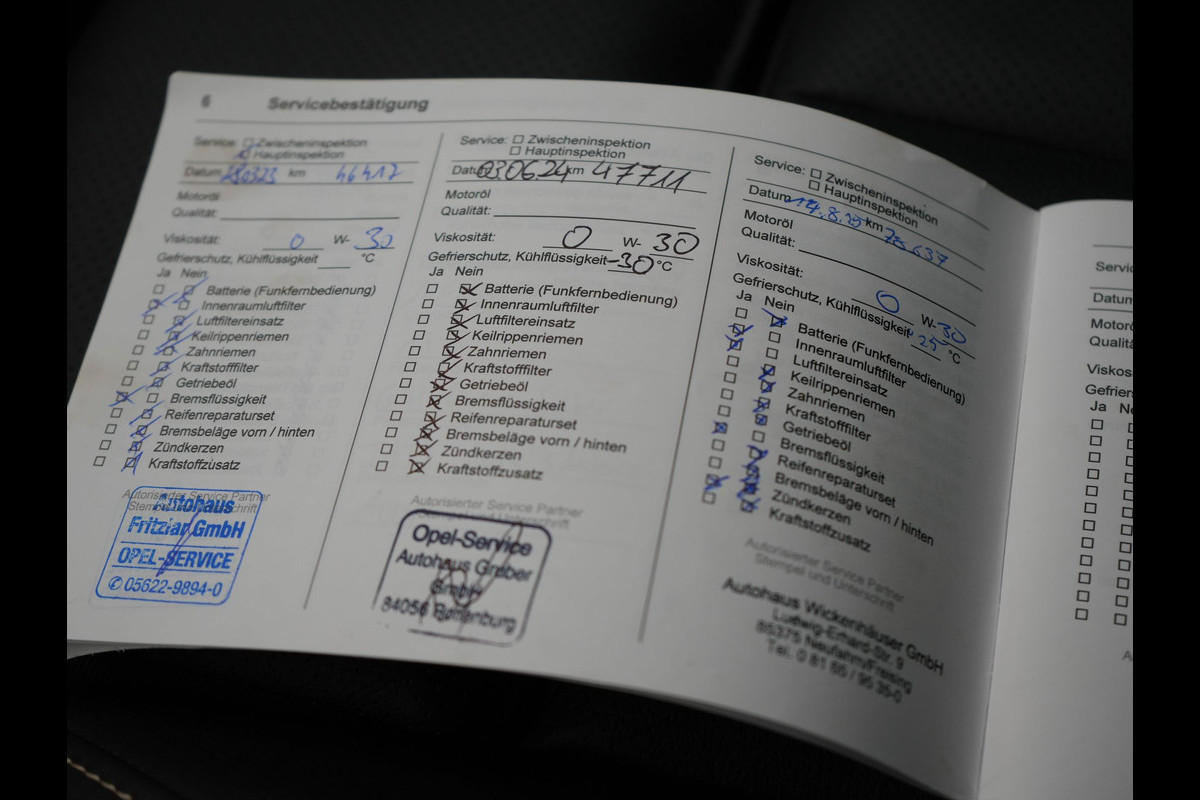 6 Servicebestätigung
Service: Zwischeninspektion
Hauptinspektion
Datum km 46417
Motoröl
Qualität:
Viskosität: 0 W- 30
Gefrierschutz, Kühlflüssigkeit °C
Ja Nein
Batterie (Funkfernbedienung)
Innenraumluftfilter
Luftfiltereinsatz
Keilrippenriemen
Zahnriemen
Kraftstofffilter
Getriebeöl
Bremsflüssigkeit
Reifenreparaturset
Bremsbeläge vorn / hinten
Zündkerzen
Kraftstoffzusatz
Autorisierter Service Partner
Autohaus
Fritzlar GmbH
OPEL-SERVICE
✆ 05622-9894-0
Service: Zwischeninspektion
Hauptinspektion
Datum 030624 km 47711
Motoröl
Qualität:
Viskosität: 0 W- 30
Gefrierschutz, Kühlflüssigkeit -30 °C
Ja Nein
Batterie (Funkfernbedienung)
Innenraumluftfilter
Luftfiltereinsatz
Keilrippenriemen
Zahnriemen
Kraftstofffilter
Getriebeöl
Bremsflüssigkeit
Reifenreparaturset
Bremsbeläge vorn / hinten
Zündkerzen
Kraftstoffzusatz
Autorisierter Service Partner
Stempel und Unterschrift
Opel-Service
Autohaus Gruber
GmbH
84056 Rottenburg
Service: Zwischeninspektion
Hauptinspektion
Datum km
Motoröl
Qualität:
Viskosität: 0 W- 30
Gefrierschutz, Kühlflüssigkeit 25 °C
Ja Nein
Batterie (Funkfernbedienung)
Innenraumluftfilter
Luftfiltereinsatz
Keilrippenriemen
Zahnriemen
Kraftstofffilter
Getriebeöl
Bremsflüssigkeit
Reifenreparaturset
Bremsbeläge vorn / hinten
Zündkerzen
Kraftstoffzusatz
Autorisierter Service Partner
Stempel und Unterschrift
Autohaus Wickenhäuser GmbH
Ludwig-Erhard-Str. 9
85375 Neufahrn/Freising
Tel. 0 81 65 / 95 35-0
Servic
Datum
Motorö
Qualitä
Viskos
Gefrier
Ja Ne
A